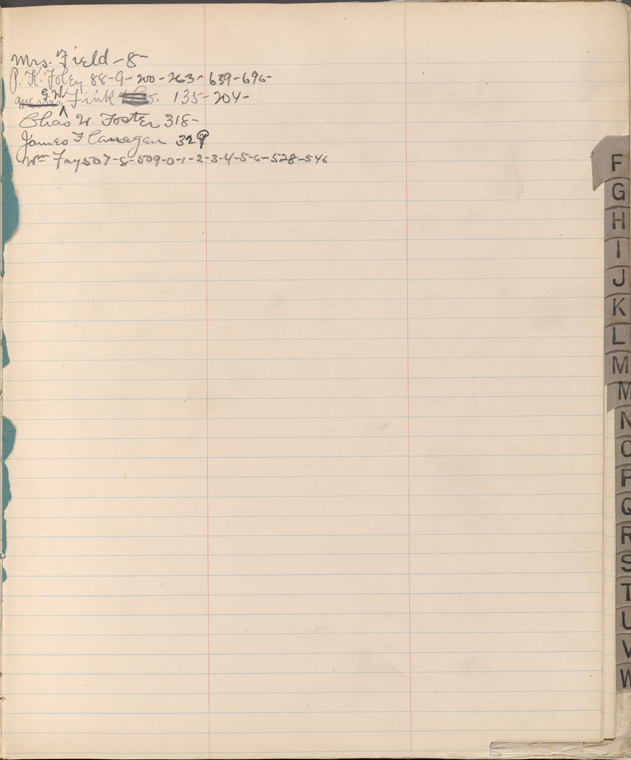 Mrs. Field - 8 -
P. K. Foley 88-9-200-263-639-696-
G.W. Fink 135-204-
Chas W. Foster 318-
James Flanagan 329
Wm Fay 507-8-509-0-1-2-3-4-5-6-528-546
F
G
H
I
J
K
L
M
M
N
O
P
Q
R
S
T
U
V
W